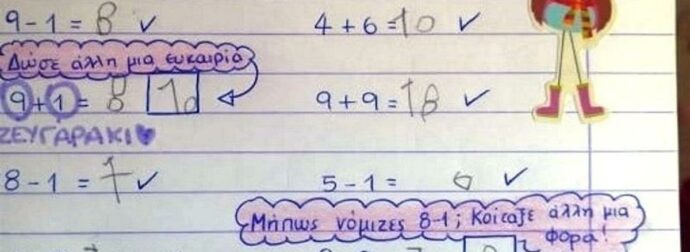 9-1=8 ✓ 4+6=10 ✓
Δώσε άλλη μια ευκαιρία
9+1=8 10 9+9=18 ✓
ΖΕΥΓΑΡΑΚΙ
8-1=7 ✓ 5-1= ✓
Μήπως νόμιζες 8-1; Κοίταξε άλλη μια
φορα!